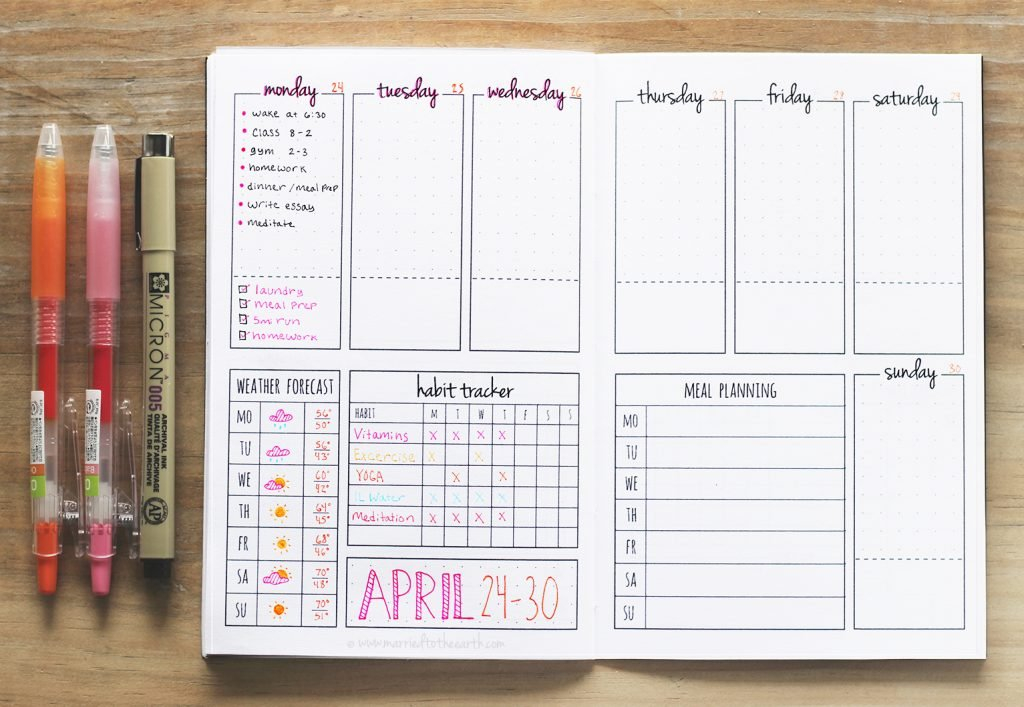 monday 24
wake at 6:30
class 8-2
gym 2-3
homework
dinner/meal prep
write essay
meditate
laundry
meal prep
5mi run
homework
tuesday 25
wednesday 26
thursday 27
friday
saturday 29
WEATHER FORECAST
MO 56° 50°
TU 56° 43°
WE 60° 42°
TH 64° 45°
FR 68° 46°
SA 70° 48°
SU 70° 51°
habit tracker
HABIT M T W T F S S
Vitamins X X X X
Excercise X X
YOGA X X
1L Water X X X X
Meditation X X X X
APRIL 24-30
MEAL PLANNING
MO
TU
WE
TH
FR
SA
SU
sunday 30
© www.marriedtotheearth.com
PIGMA
MICRON 005
ARCHIVAL INK
QUALITÉ D'ARCHIVAGE
TINTA DE ARCHIVE
AP